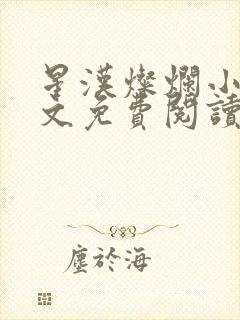 星漢燦爛小
文免費閱讀
塵於海